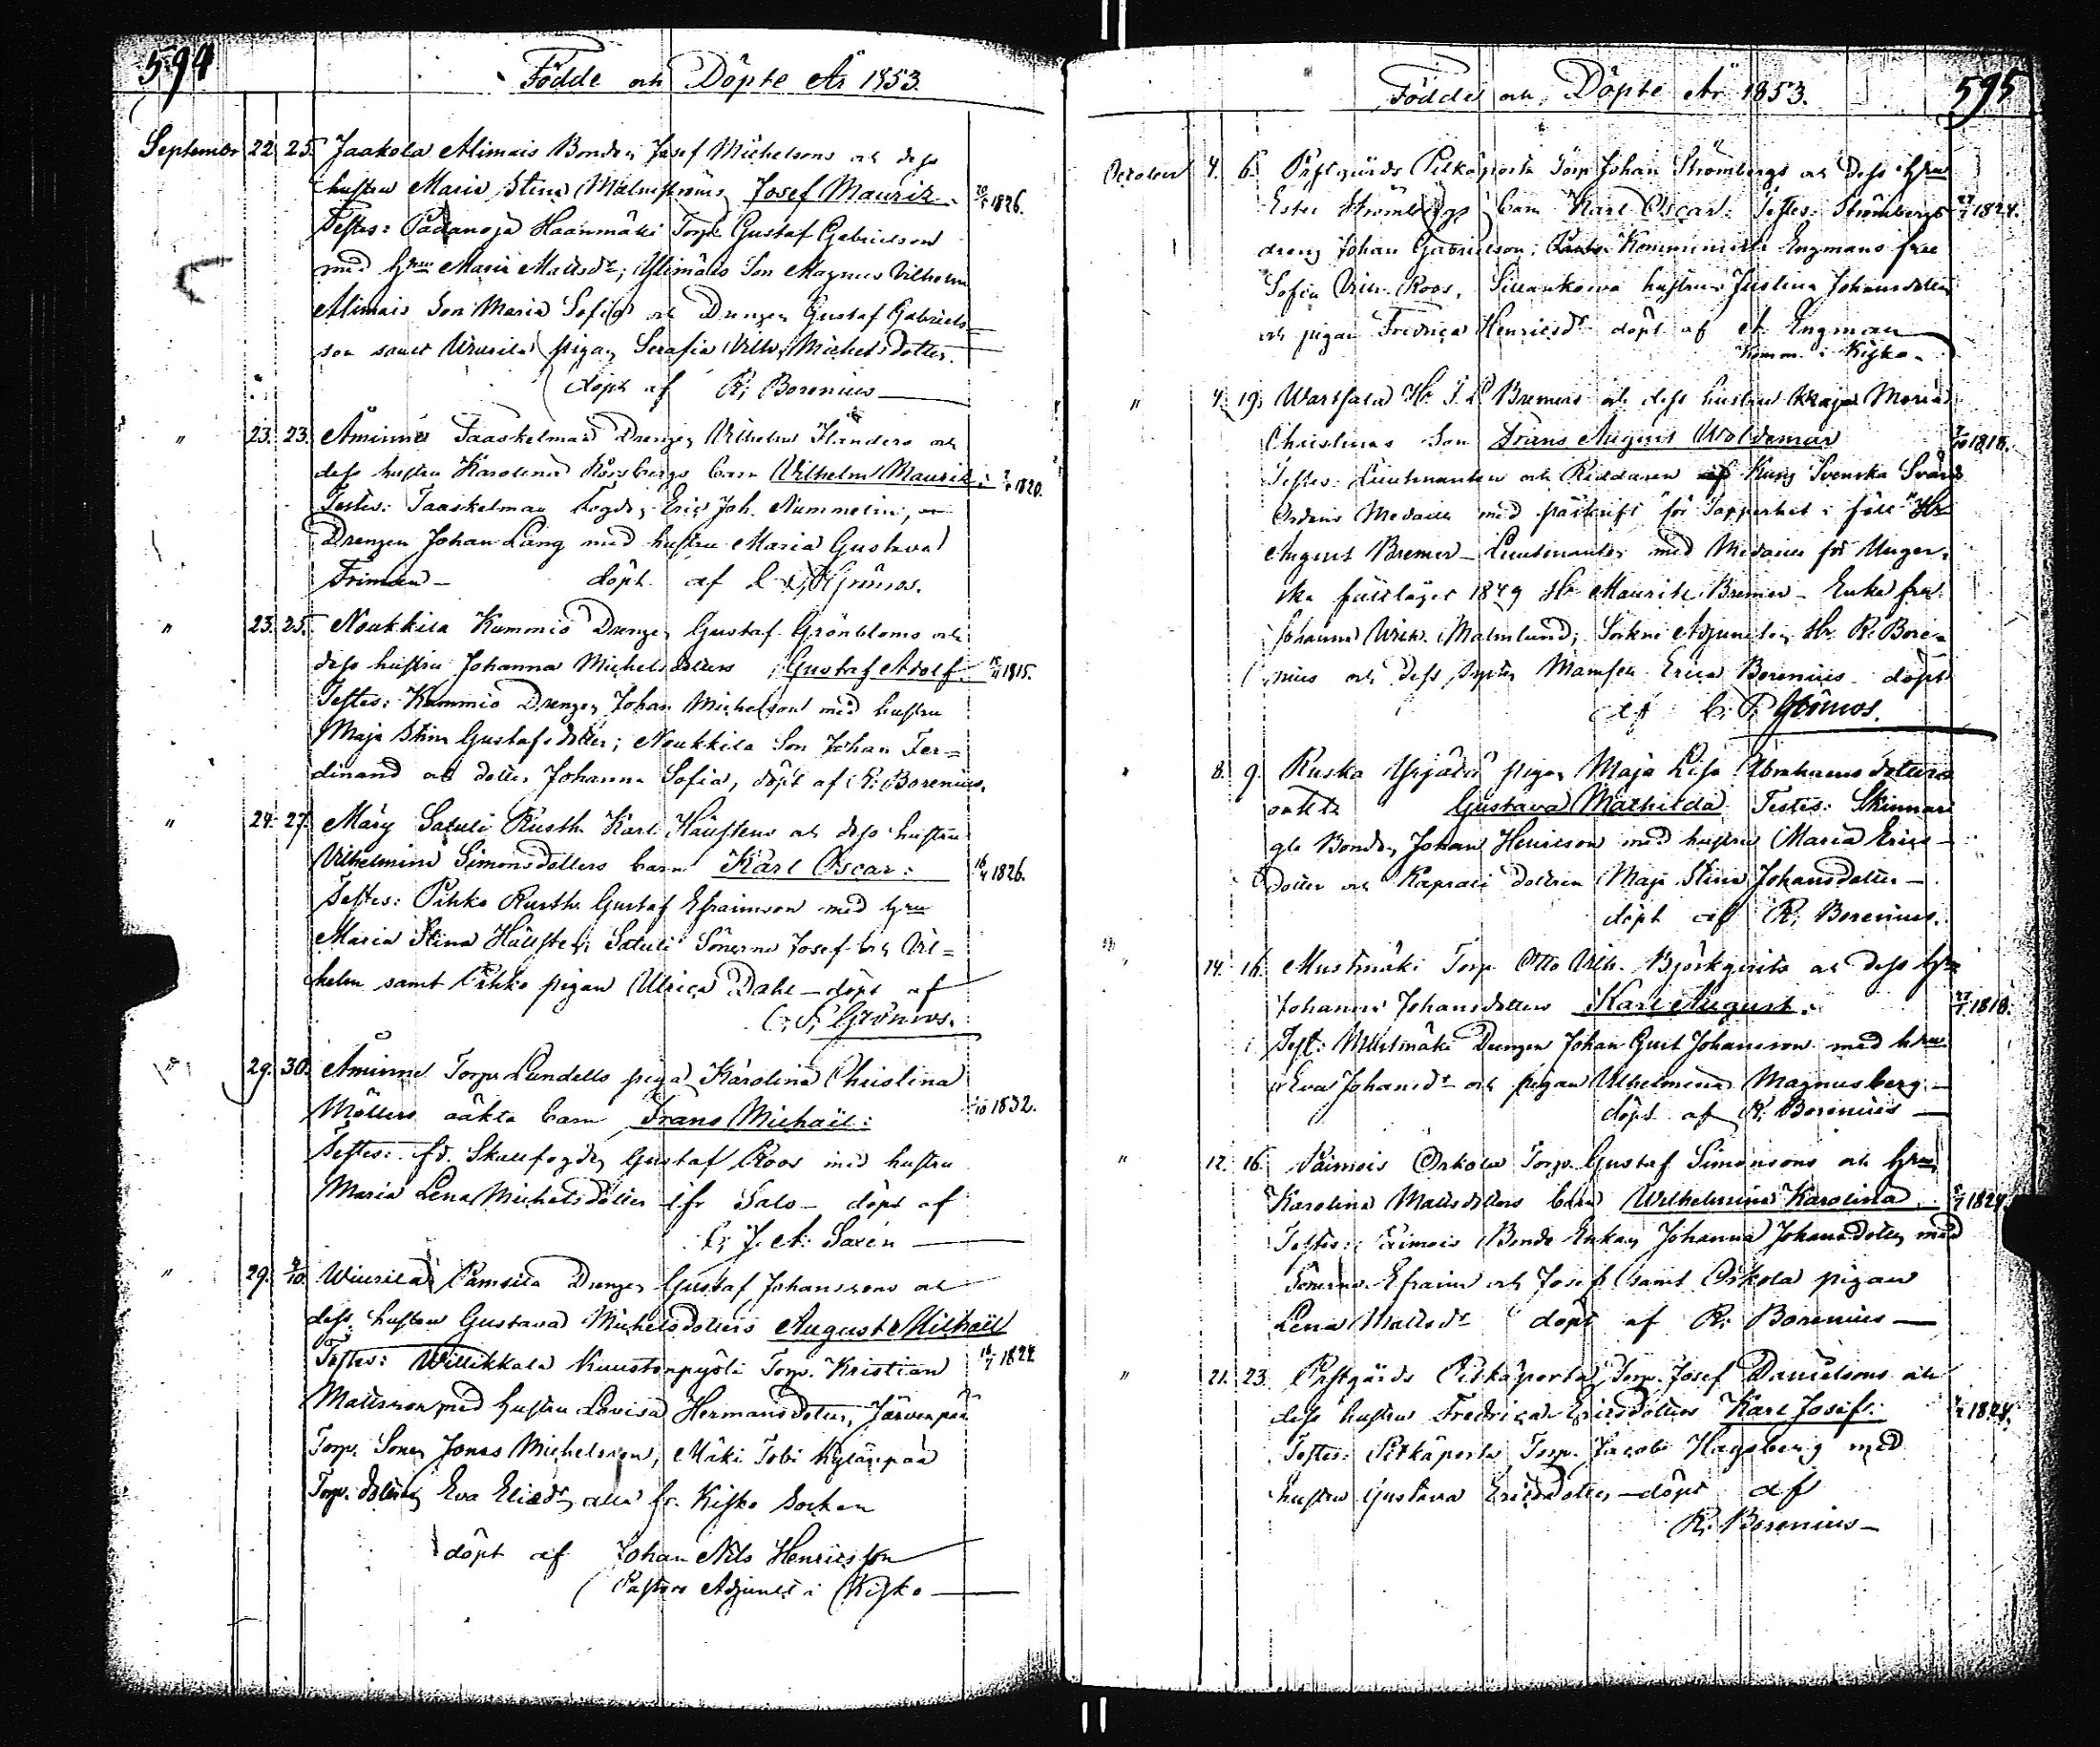 594
Födde och Döpte År 1853.
September 22. 25. Jaakola Alimais Bonden Josef Michelsons och dess
hustru Maria Stina Malmströms Josef Maurik. 1826.
Testes: Padanoja Haanmäki Torp. Gustaf Gabrielson
med hru Maria Mattsdr; Ylimäis Son Magnus Vilhelm
Alimais Son Maria Sofia och Drengen Gustaf Gabriels-
son samt pigan Serafia Vilh. Michelsdotter.
döpt af R. Borenius
" 23. 23. Åminne Taaskelman Drengen Vilhelm Flanders och
dess hustru Karolina barn Wilhelm Maurik: 1820.
Testes: Taaskelman Fogden Eric Joh. Nummelin,
Drengen Johan Lång med hustru Maria Gustava
Friman - döpt af Grönros.
" 23. 25. Noukkila Kummio Drengen Gustaf Grönbloms och
dess hustru Johanna Michelsdotters Gustaf Adolf. 1815.
Testes: Kummio Drengen Johan Michelson med hustru
Maja Stina Gustafsdotter; Noukkila Son Johan Fer=
dinand och dotter Johanna Sofia, döpt af R. Borenius.
" 24. 27. Märy Satuli Rusth. Karl Hällstens och dess hustru
Vilhelmina Simonsdotters barn Karl Oscar: 16/4 1826.
Testes: Pihko Rusth. Gustaf Efraimson med hru
Maria Stina Hällsten; Satuli Sönerna Josef och Vil=
helm samt Pihko pigan Ulrica Dahl - döpt af
C. P. Grönros.
" 29. 30. Åminne Torp. Lundells piga Karolina Christina
Möllers oäkta barn Frans Michaël: 1832.
Testes: fd. Skallfogden Gustaf Roos med hustru
Maria Lena Michelsdotter fr Salo - döpt af
J. A. Saxén
" 29. 2/10. Wiurila Pamsila Drengen Gustaf Johanssons och
dess hustru Gustava Michelsdotters August Michaël
Testes: Willikkala Torp. Kristian 18/7 1824
Mattsson med hustru Lovisa Hermansdotter, Järvenpää
Torp. Sonen Jonas Michelsson, Mäki Tobi Kylänpää
Torp. dottren Eva Eliædr, alla fr. Kisko Socken
döpt af Johan Nils Henricsson
Pastors Adjunct i Kisko
595
Födde och Döpte År 1853.
October 4. 6. Prestgårds Pitkäporta Torp. Johan Strömbergs och dess hru
Ester Strömbergs barn Karl Oscar: Testes: Strömbergs 1824.
dreng Johan Gabrielson; Komminister Engmans fru
Sofia Vilh. Roos, hustrun Justina Johansdotter
och pigan Fredrica Henricsdr döpt af A. Engman
Komm. i Kisko
" 4. 19. Warsala Hr. Bremers och dess hustru Maja Maria
Christinas Son Frans August Woldemar 1818.
Testes: Lieutnanten och Riddaren af Kung Svenska Svärds
Ordens Medaille med påskrift "för Tapperhet i fält" Hr
August Bremer - Lieutnanten med Medaille för Unger-
ska fältläget 1849 Hr Mauritz Bremer - Enke fru
Johanna Malmlund; Sockne Adjuncten Hr. R. Bore-
nius och dess syster Mamsell Erica Borenius - döpt
af C. P. Grönros.
" 8. 9. Ruska Yrjälä pigan Maja Lisa Abrahamsdotters
oäkta Gustava Mathilda Testes: Skinnar
gln Bonden Johan Henricson med hustru Maria Erics-
dotter och Kaprali dottren Maja Stina Johansdotter -
döpt af R. Borenius.
" 14. 16. Mustmäki Torp. Otto Vilh. Björkqvists och dess hru
Johanna Johansdotters Karl August: 1818.
Test: Mustmäki Drengen Johan Gust Johansson med hru
Eva Johansdr och pigan Vilhelmina Magnusberg -
döpt af R. Borenius
" 12. 16. Vaimois Orkola Torp. Gustaf Simonsons och hru
Karolina Mattsdotters barn Wilhelmina Karolina 1824.
Testes: Vaimois Bonde Enkan Johanna Johansdotter med
Sönerna Efraim och Josef samt Orkola pigan
Lena Mattsdr döpt af R. Borenius
" 21. 23. Prestgårds Pitkäporta Torp. Josef Danielsons och
dess hustrus Fredrica Ericsdotters Karl Josef: 1824.
Testes: Pitkäporta Torp. Jacob Hagsberg med
hustru Gustava Ericsdotter - döpt af
R. Borenius